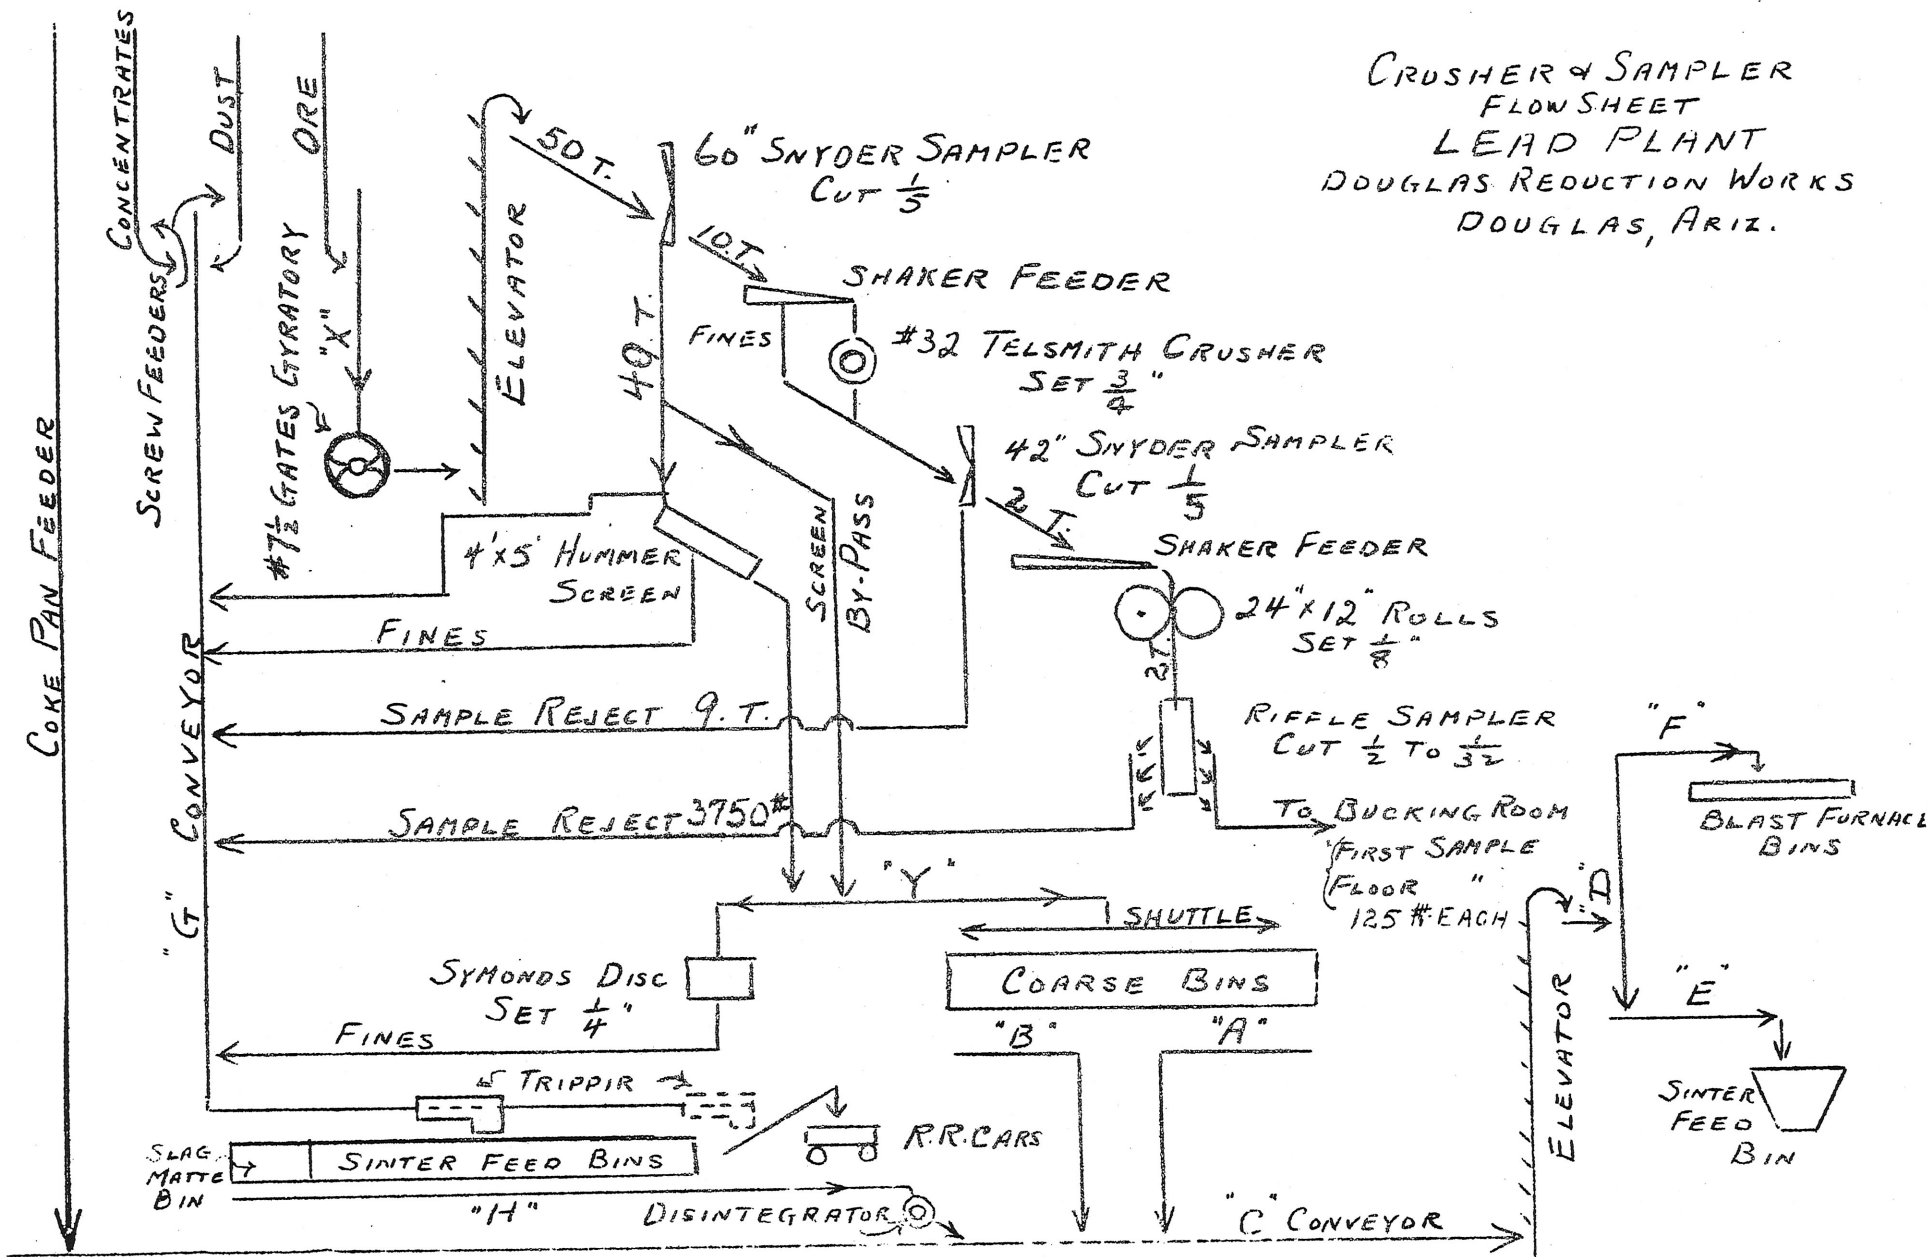 CRUSHER & SAMPLER
FLOW SHEET
LEAD PLANT
DOUGLAS REDUCTION WORKS
DOUGLAS, ARIZ.
COKE PAN FEEDER
CONCENTRATES
DUST
ORE
SCREW FEEDERS
#7½ GATES GYRATORY
"X"
ELEVATOR
50 T.
60" SNYDER SAMPLER
CUT 1/5
10 T.
40 T.
SHAKER FEEDER
FINES
#32 TELSMITH CRUSHER
SET 3/4"
42" SNYDER SAMPLER
CUT 1/5
2 T.
SHAKER FEEDER
4'x5' HUMMER
SCREEN
SCREEN
BY-PASS
24"x12" ROLLS
SET 1/8"
2 T.
FINES
"G" CONVEYOR
SAMPLE REJECT 9. T.
RIFFLE SAMPLER
CUT 1/2 TO 1/32
SAMPLE REJECT 3750#
TO BUCKING ROOM
FIRST SAMPLE
FLOOR "
125 # EACH
"F"
BLAST FURNACE
BINS
"D"
"Y"
SHUTTLE
SYMONDS DISC
SET 1/4"
COARSE BINS
"B"
"A"
"E"
ELEVATOR
SINTER
FEED
BIN
FINES
TRIPPIR
R.R. CARS
SLAG
MATTE
BIN
SINTER FEED BINS
"H"
DISINTEGRATOR
"C" CONVEYOR